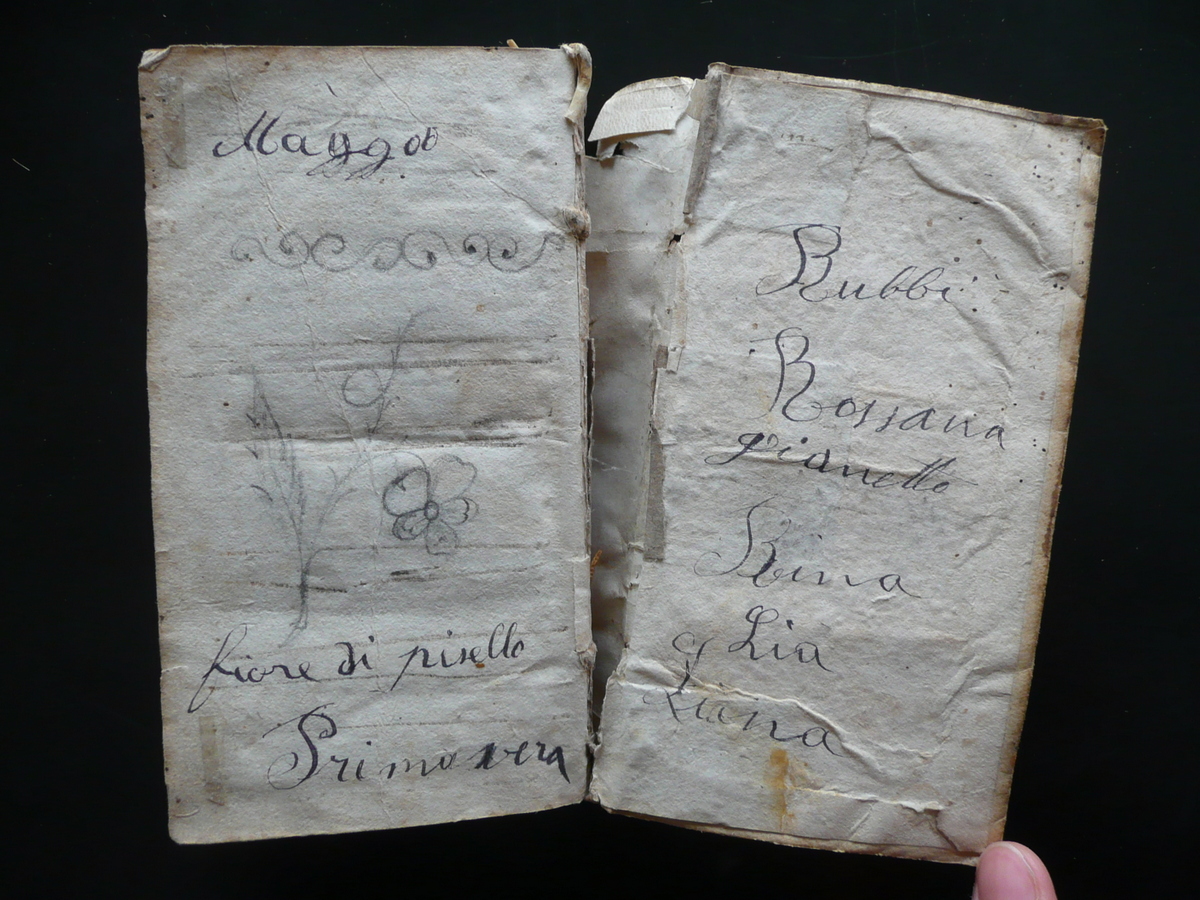 Maggio
fiore di pisello
Primavera
Rubbi
Rossana
gianetto
Rina
Lia
Liana